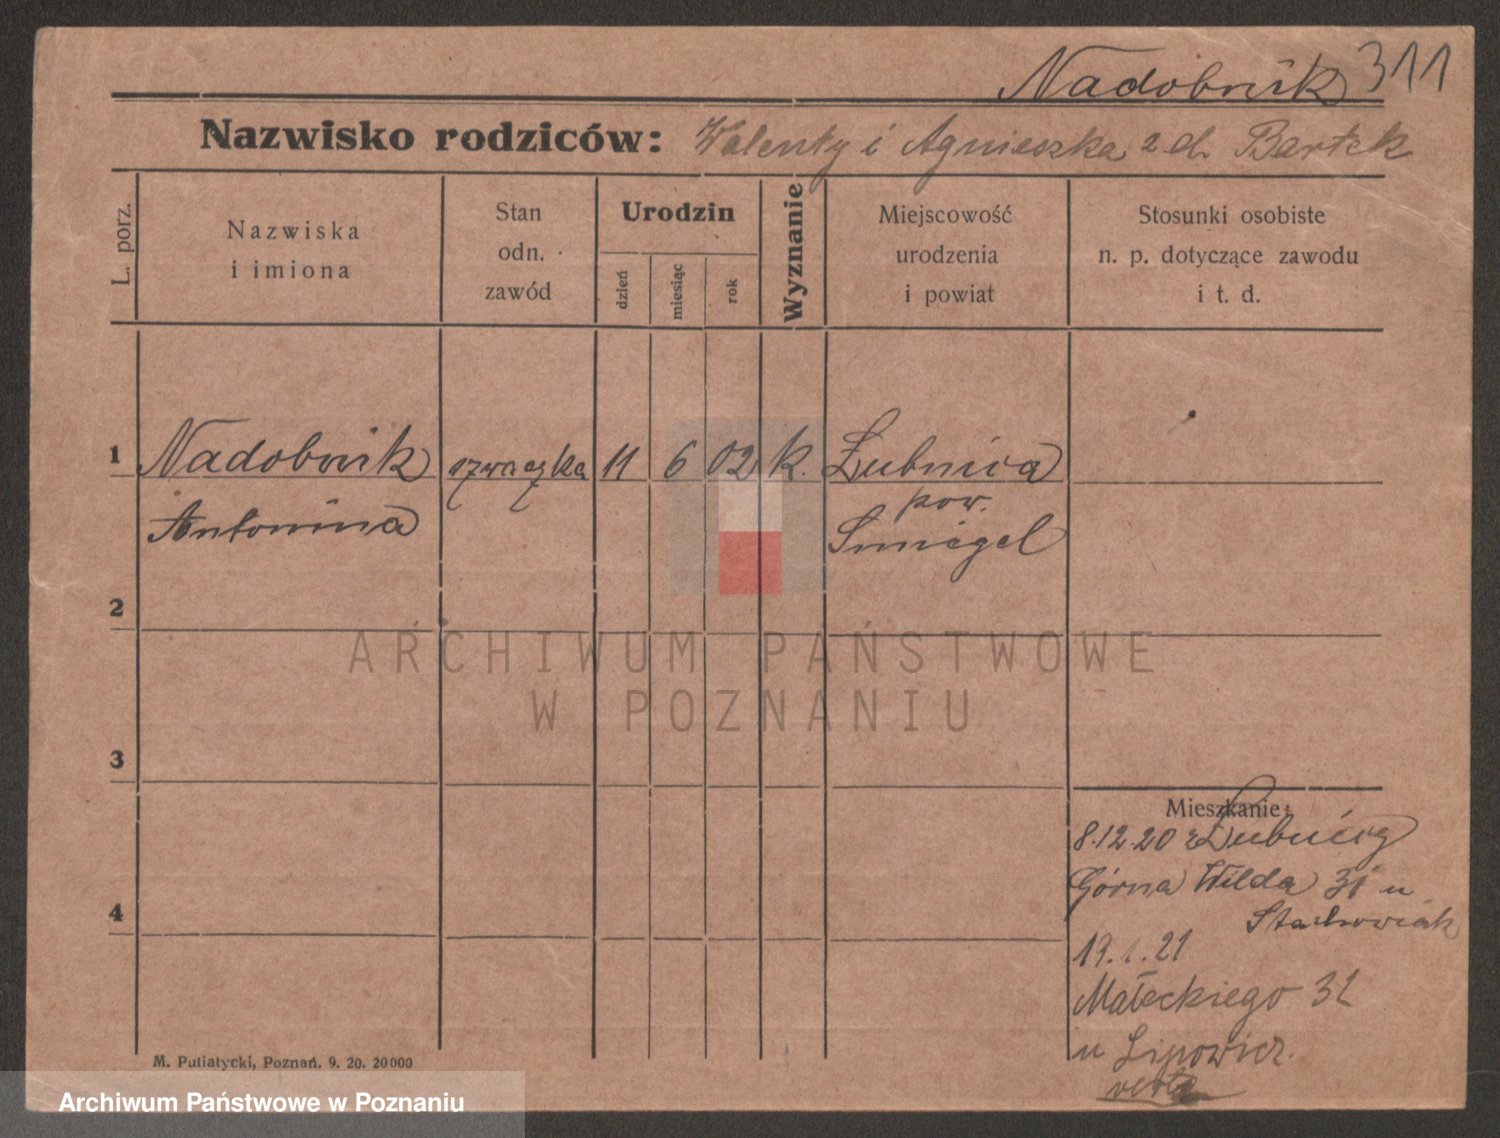 Nadobnik 311
Nazwisko rodziców: Walenty i Agnieszka z d. Bartek
L. porz.
Nazwiska
i imiona
Stan
odn.
zawód
Urodzin
dzień
miesiąc
rok
Wyznanie
Miejscowość
urodzenia
i powiat
Stosunki osobiste
n. p. dotyczące zawodu
i t. d.
1 Nadobnik 11 6 02 k. Łubnica
pow.
Antonina Śmigel
2
3
4
Mieszkanie:
8.12.20 z Łubnicy
Górna Wilda 31 u
Stachowiak
19.1.21
Małeckiego 31
u Lipowicz.
verte
M. Putiatycki, Poznań. 9. 20. 20000
ARCHIWUM PAŃSTWOWE
W POZNANIU
Archiwum Państwowe w Poznaniu